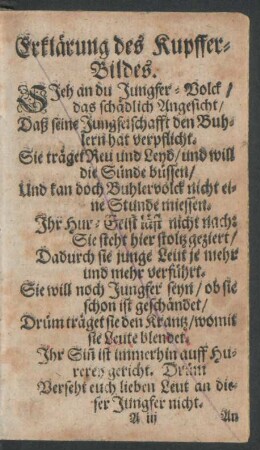 Erklärung des Kupffer-
Bildes.
SJeh an du Jungfer-Volck /
das schädlich Angesicht /
Daß seine Jungferschafft den Buh-
lern hat verpflicht.
Sie träget Reu und Leyd / und will
die Sünde büssen /
Und kan doch Buhlervolck nicht ei-
ne Stunde miessen.
Jhr Hur-Geist läst nicht nach:
Sie steht hier stoltz geziert /
Dadurch sie junge Leut je mehr
und mehr verführt.
Sie will noch Jungfer seyn / ob sie
schon ist geschändet /
Drüm träget sie den Krantz / womit
sie Leute blendet.
Jhr Siñ ist immerhin auff Hu-
rerey gericht. Drüm
Verseht euch lieben Leut an die-
ser Jungfer nicht.
A iij An